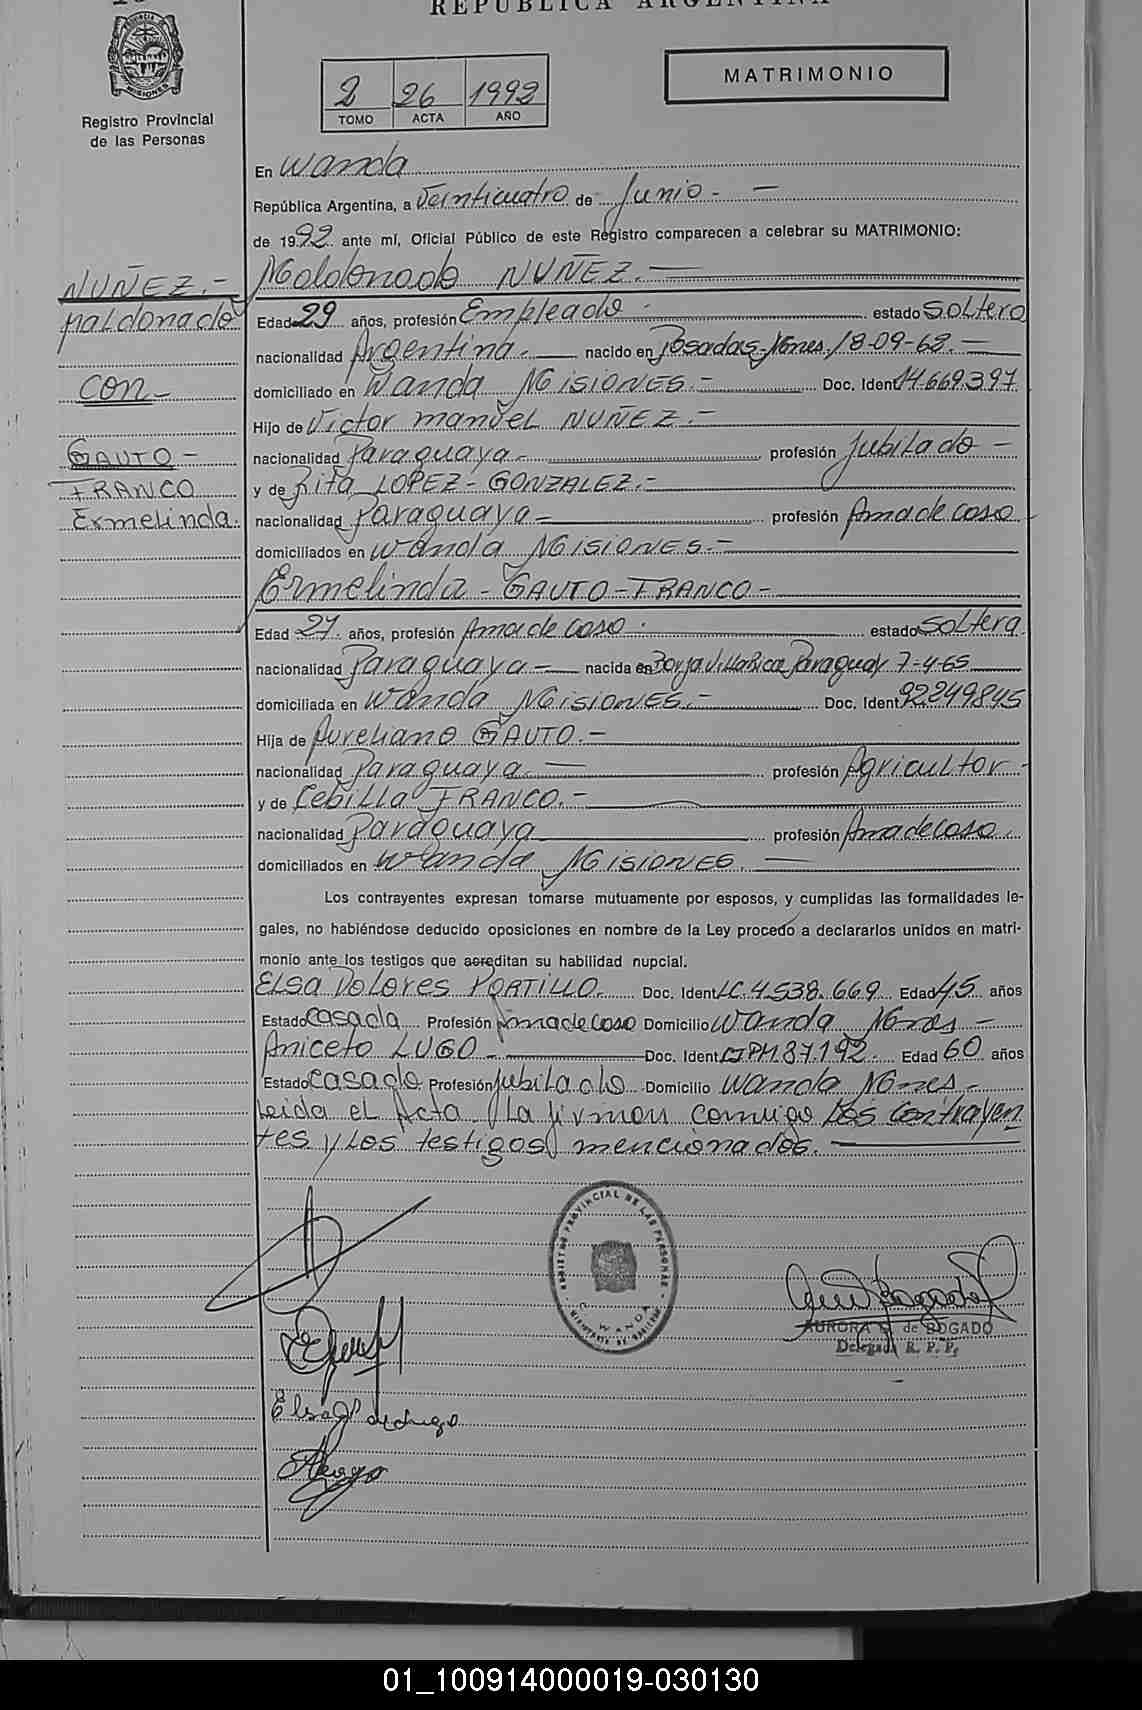 REPUBLICA ARGENTINA
PROVINCIA DE MISIONES
Registro Provincial
de las Personas
2 26 1992
TOMO ACTA AÑO
MATRIMONIO
En Wanda
República Argentina, a Veinticuatro de Junio. —
de 1992 ante mí, Oficial Público de este Registro comparecen a celebrar su MATRIMONIO:
NUÑEZ.-
Maldonado
CON-
GAUTO-
FRANCO
Ermelinda.
Maldonado NUÑEZ.—
Edad 29 años, profesión Empleado. estado SOLtero
nacionalidad Argentina.- nacido en Posadas, Mnes. 18-09-62.—
domiciliado en Wanda MISIONES.- Doc. Ident 14.669.397
Hijo de Victor manuel NUÑEZ.-
nacionalidad Paraguaya- profesión Jubilado-
y de Rita LOPEZ-GONZALEZ.-
nacionalidad Paraguaya- profesión Ama de casa
domiciliados en Wanda MISIONES.-
Ermelinda-GAUTO-FRANCO-
Edad 27. años, profesión Ama de casa. estado SOLtera.
nacionalidad Paraguaya- nacida en Borja Villa Rica Paraguay 7-4-65
domiciliada en Wanda MISIONES.- Doc. Ident 92.249845
Hija de Aureliano GAUTO.-
nacionalidad Paraguaya.— profesión Agricultor-
y de Cebilla FRANCO.-
nacionalidad Paraguaya profesión Ama de casa.
domiciliados en Wanda MISIONES.—
Los contrayentes expresan tomarse mutuamente por esposos, y cumplidas las formalidades le-
gales, no habiéndose deducido oposiciones en nombre de la Ley procedo a declararlos unidos en matri-
monio ante los testigos que acreditan su habilidad nupcial.
ELSA DOLORES PORTILLO. Doc. Ident LC.4.538.669 Edad 45 años
Estado Casada Profesión Ama de casa Domicilio Wanda Mnes-
Aniceto LUGO- Doc. Ident CIPM 87.192. Edad 60 años
Estado Casado Profesión Jubilado Domicilio Wanda Mnes-
Leida el Acta La firman conmigo Los Contrayen
tes y Los testigos mencionados.
REGISTRO PROVINCIAL DE LAS PERSONAS
WANDA
Elsa P. de Lugo
AURORA de BOGADO
Delegada R. P. P.
01_100914000019-030130